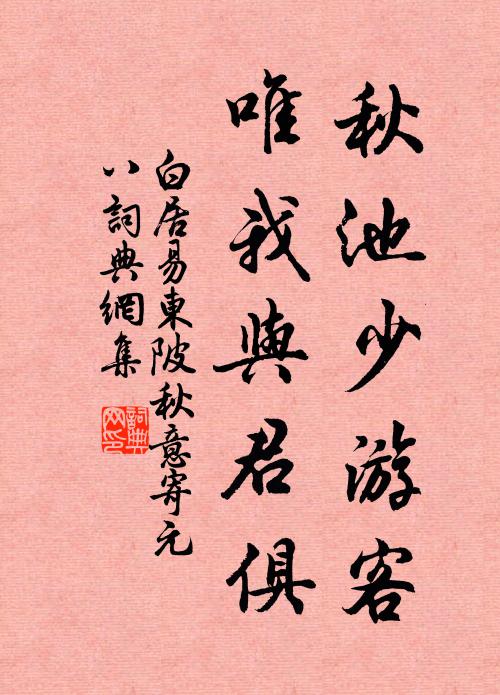 秋池少游客
唯我與君俱
白居易東陂秋意寄元
八詞典網集
詞典
网印